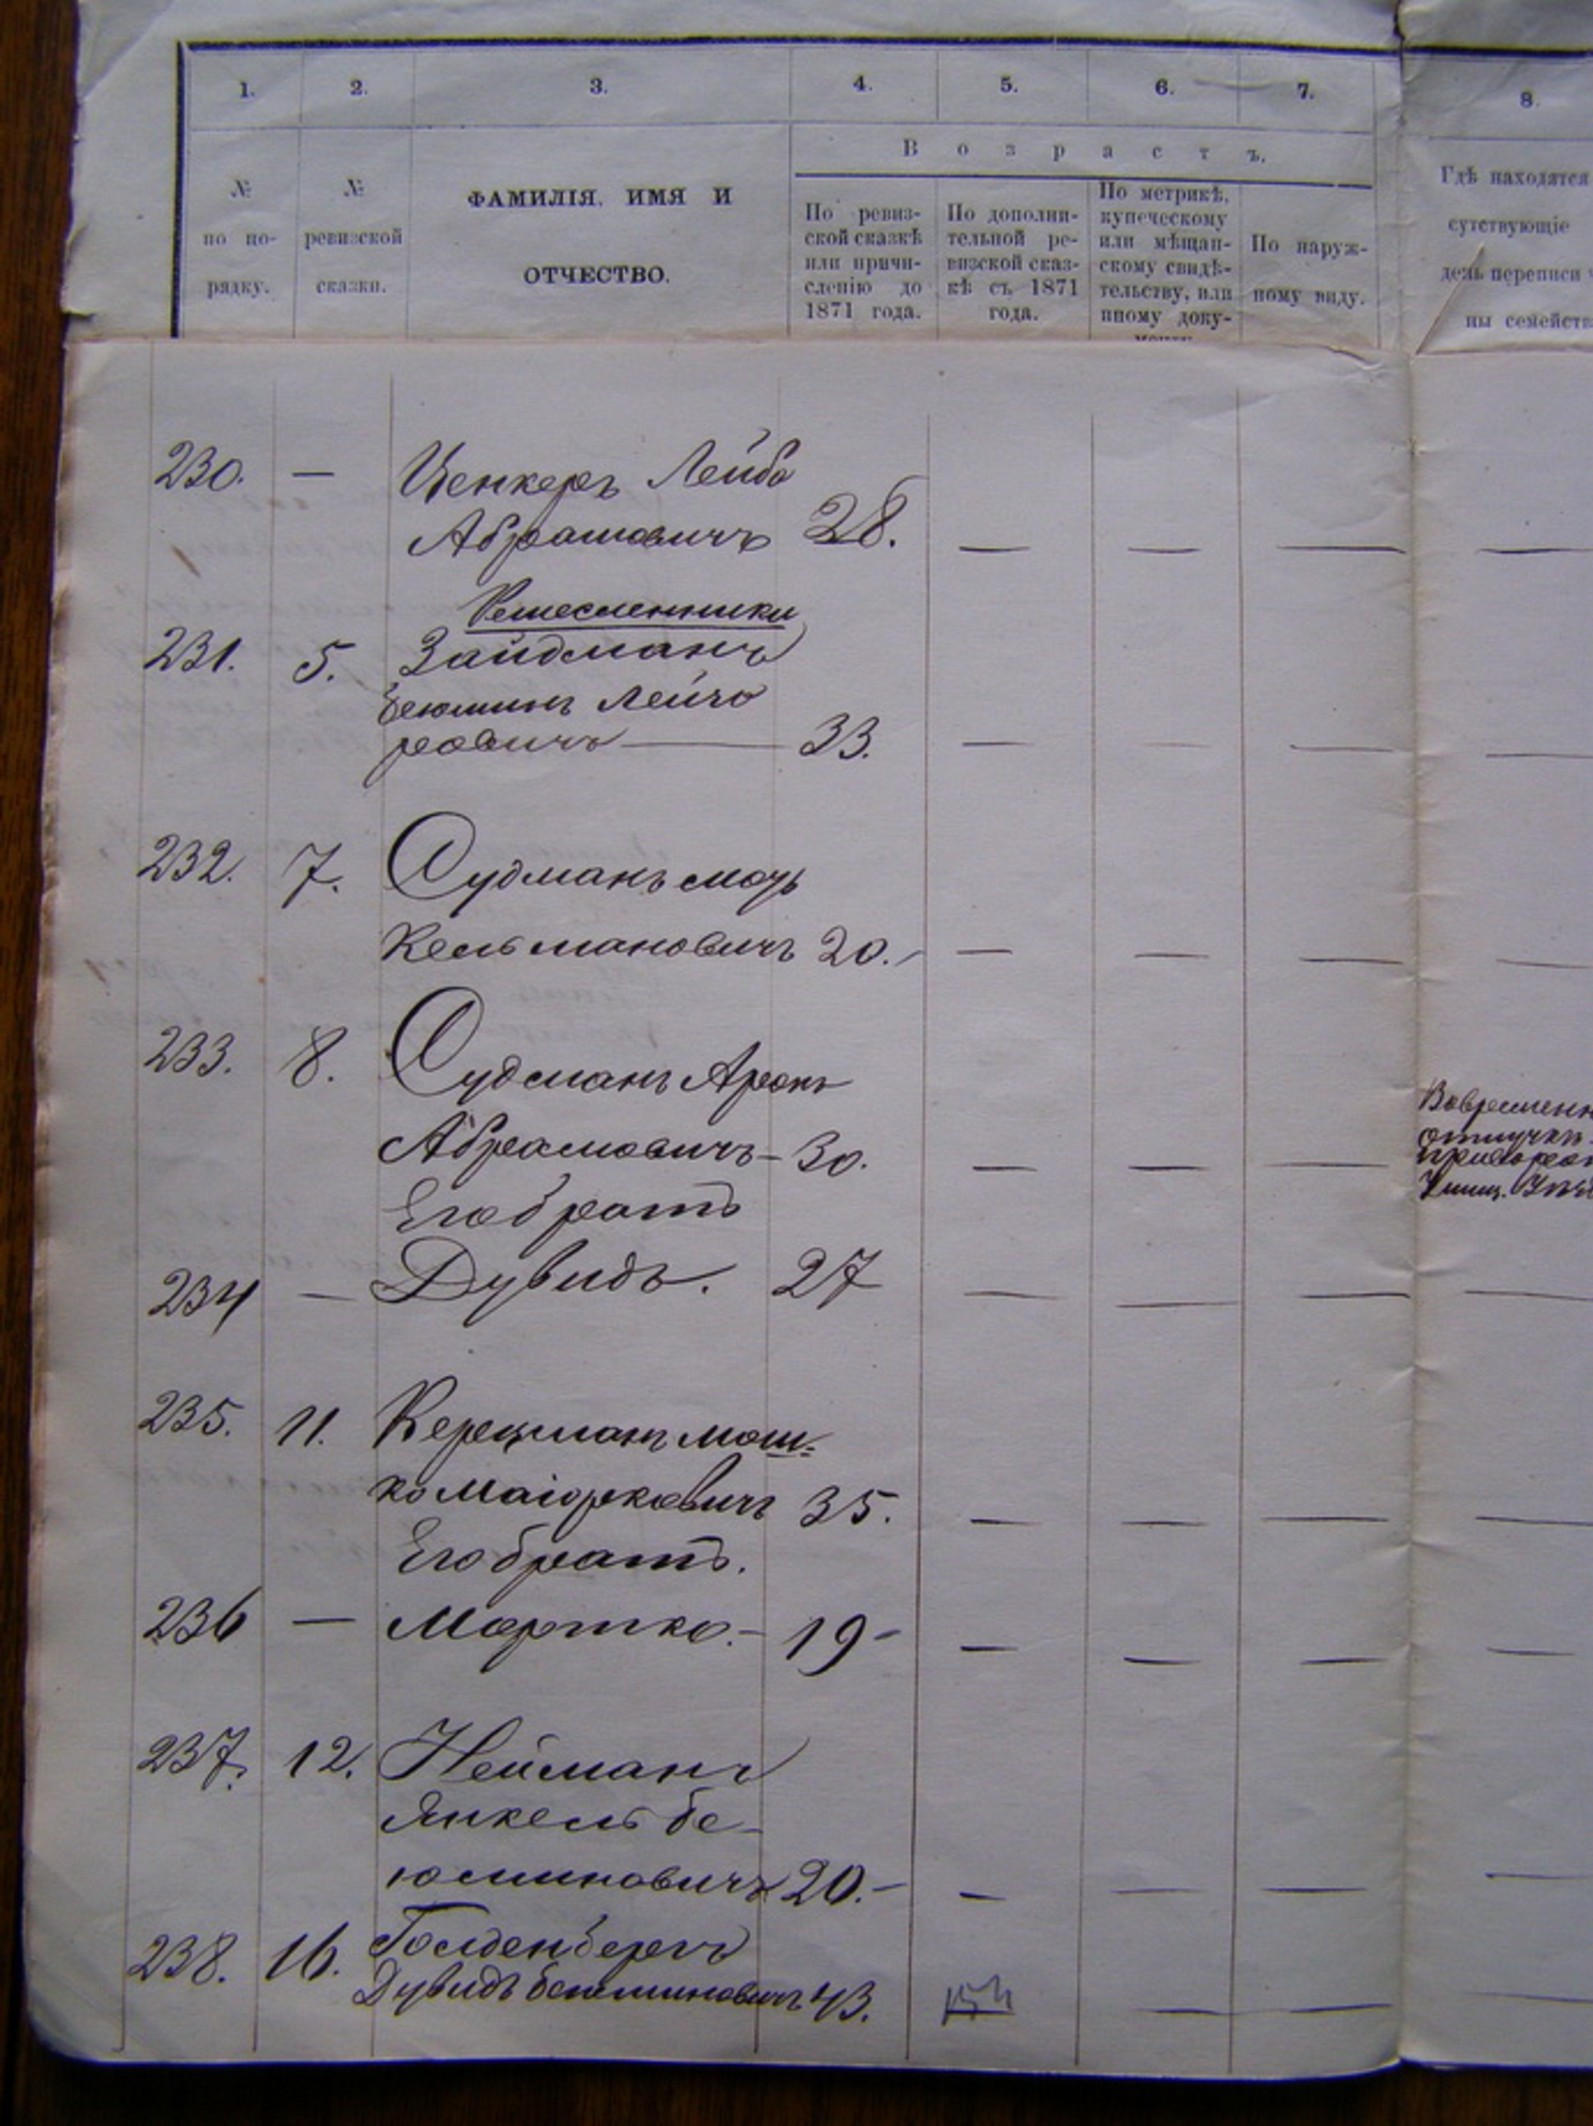 1. 2. 3. 4. 5. 6. 7. 8.
Возрастъ.
№
по по-
рядку.
№
ревизской
сказки.
ФАМИЛІЯ, ИМЯ И
ОТЧЕСТВО.
По ревиз-
ской сказкѣ
или причи-
сленію до
1871 года.
По дополни-
тельной ре-
визской сказ-
кѣ съ 1871
года.
По метрикѣ,
купеческому
или мѣщан-
скому свидѣ-
тельству, или
иному доку-
По наруж-
ному виду.
Гдѣ находятся
сутствующіе
день переписи
ны семейств
230. — Ценкеръ Лейба
Абрамовичъ 28. — — — —
Ремесленники
231. 5. Зайдманъ
Беюминъ Лейзо
ровичъ — 33. — — — —
232. 7. Судманъ
Кельмановичъ 20. — — — —
233. 8. Судманъ Аронъ
Абрамовичъ — 30. — — —
Вовременн
отлучкѣ
Его братъ
234 — Дувидъ. 27 — — — —
235. 11. Керецманъ Мош-
ко Маіорковичъ 35. — — — —
Его братъ.
236 — Мортко. — 19 — — — — —
237. 12. Нейманъ
Янкель Бе-
юминовичъ 20. — — — — —
238. 16. Голденбергъ
Дувидъ Беюминовичъ 43. — — —